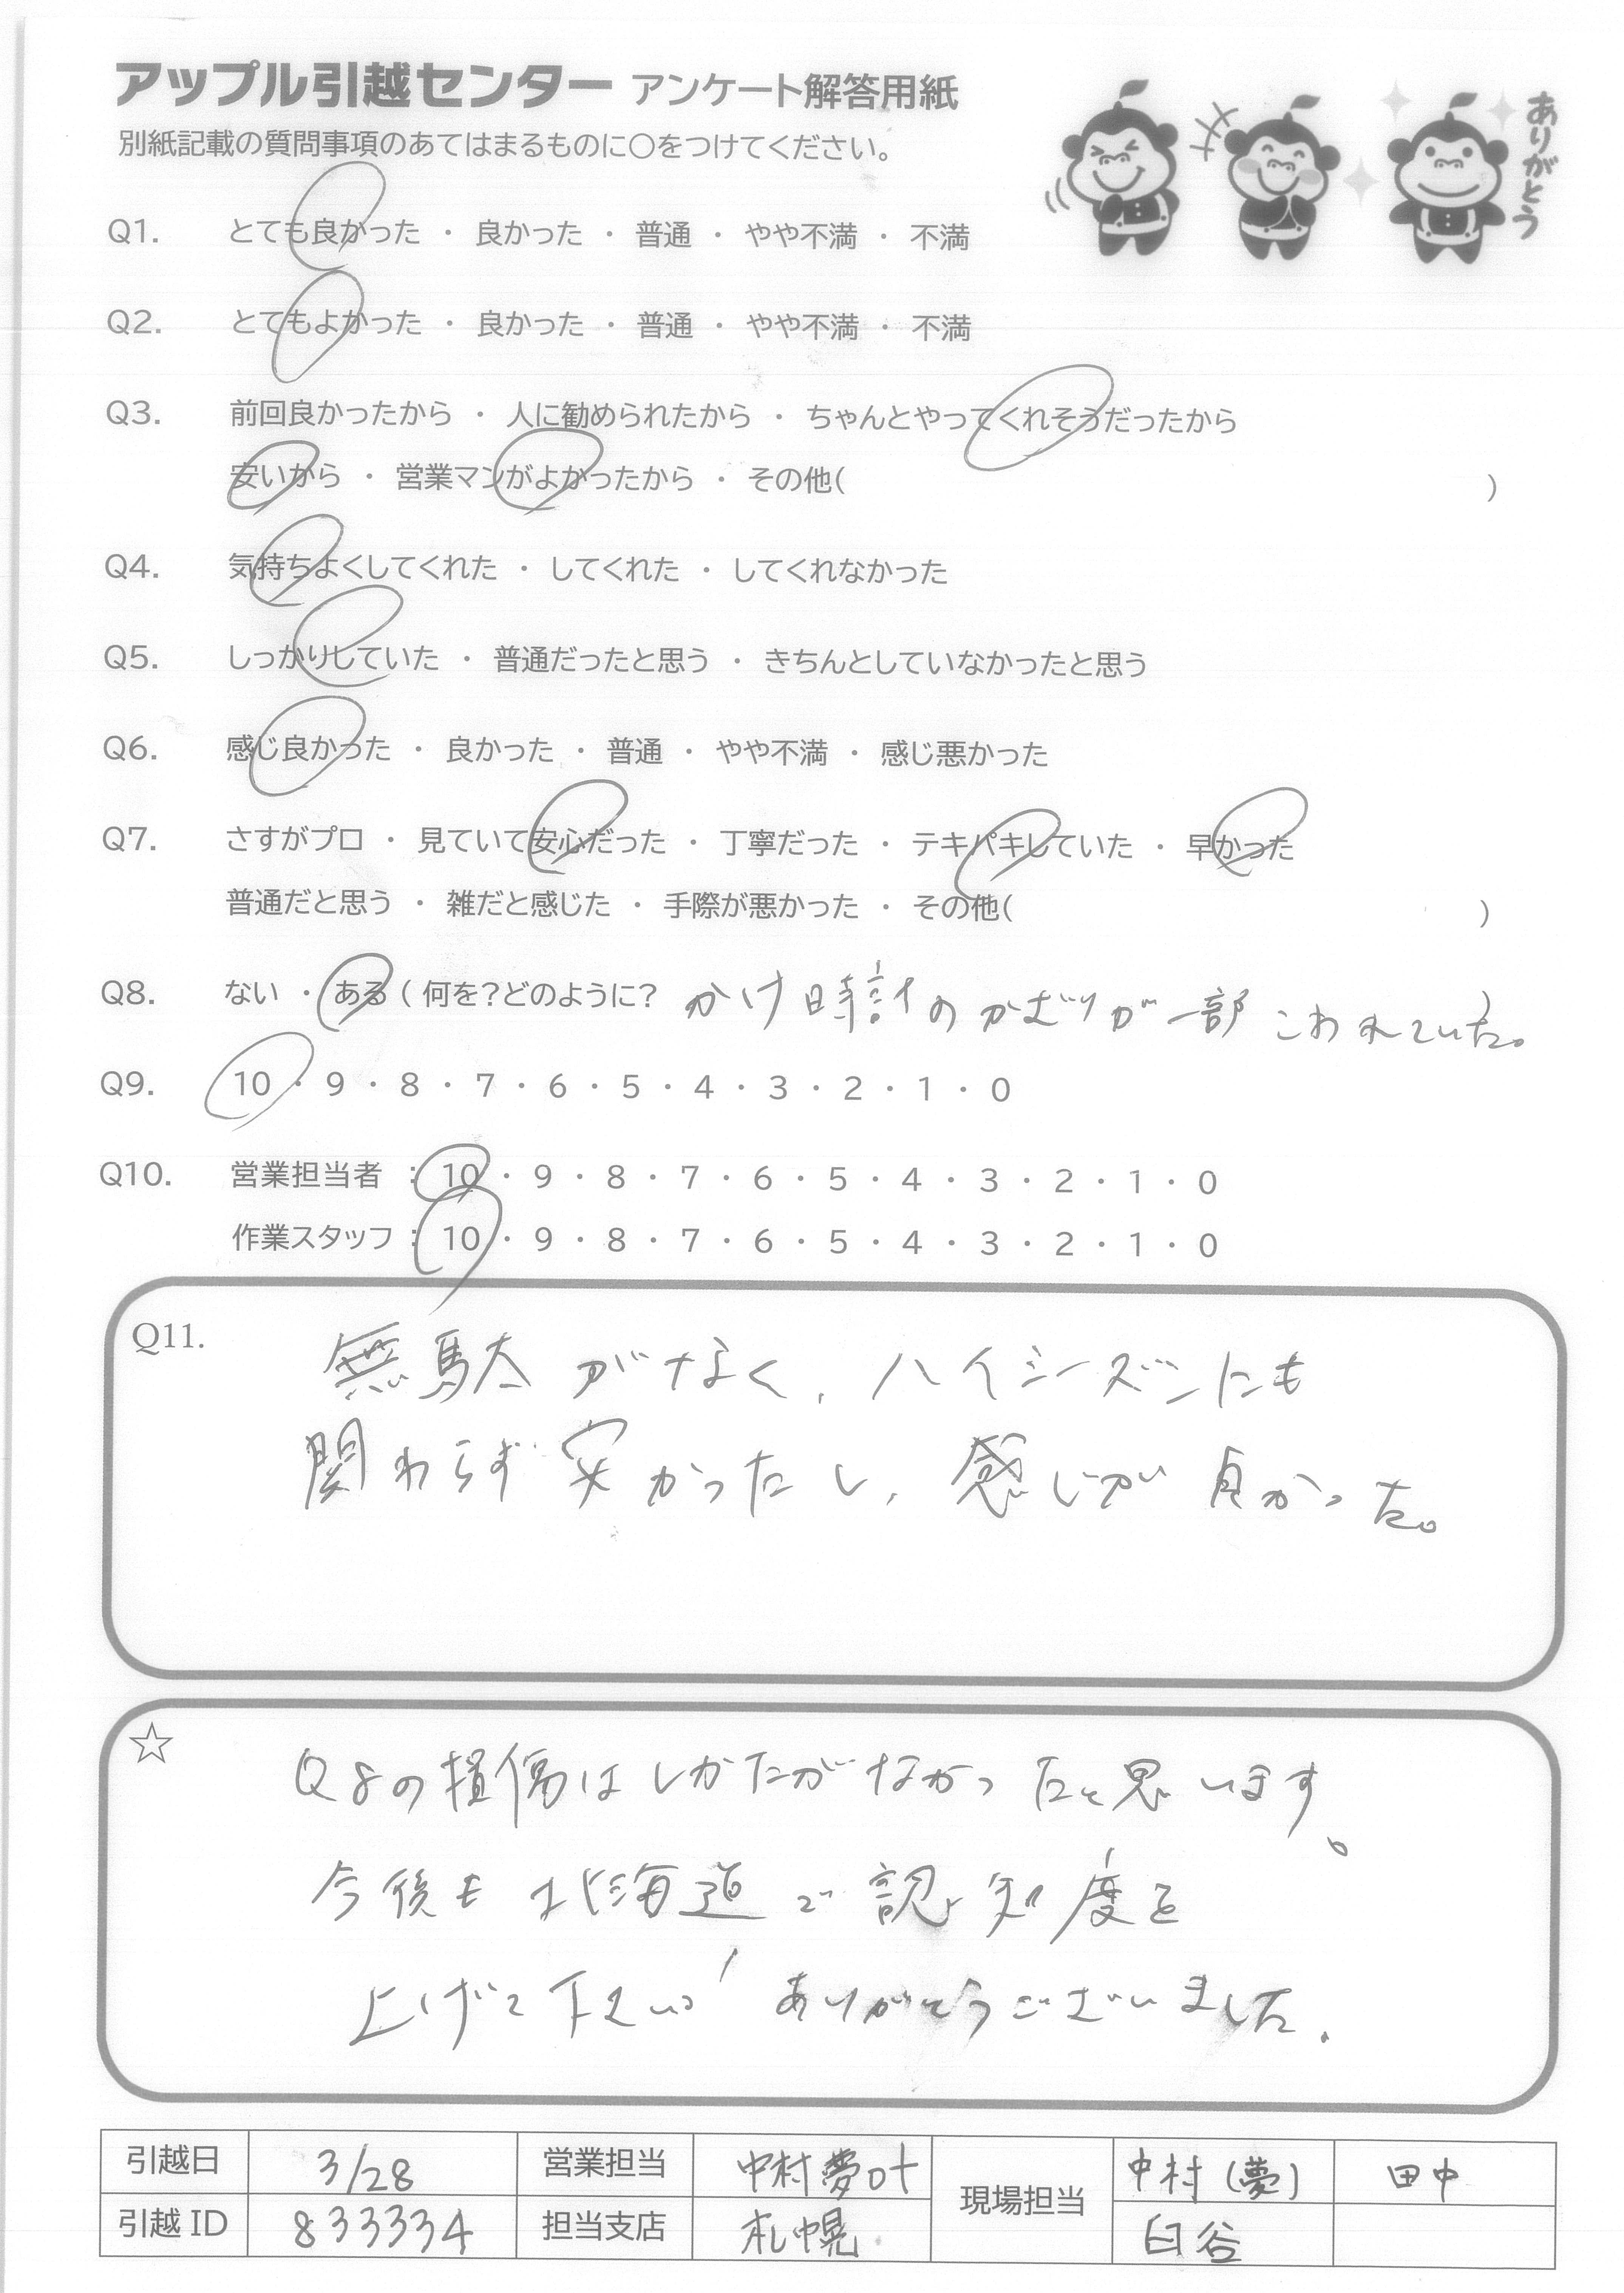 アップル引越センター アンケート解答用紙
別紙記載の質問事項のあてはまるものに○をつけてください。
ありがとう
Q1. とても良かった ・ 良かった ・ 普通 ・ やや不満 ・ 不満
Q2. とてもよかった ・ 良かった ・ 普通 ・ やや不満 ・ 不満
Q3. 前回良かったから ・ 人に勧められたから ・ ちゃんとやってくれそうだったから
安いから ・ 営業マンがよかったから ・ その他( )
Q4. 気持ちよくしてくれた ・ してくれた ・ してくれなかった
Q5. しっかりしていた ・ 普通だったと思う ・ きちんとしていなかったと思う
Q6. 感じ良かった ・ 良かった ・ 普通 ・ やや不満 ・ 感じ悪かった
Q7. さすがプロ ・ 見ていて安心だった ・ 丁寧だった ・ テキパキしていた ・ 早かった
普通だと思う ・ 雑だと感じた ・ 手際が悪かった ・ その他( )
Q8. ない ・ ある ( 何を?どのように? かけ時計のかざりが一部こわれていた。 )
Q9. 10 ・ 9 ・ 8 ・ 7 ・ 6 ・ 5 ・ 4 ・ 3 ・ 2 ・ 1 ・ 0
Q10. 営業担当者 : 10 ・ 9 ・ 8 ・ 7 ・ 6 ・ 5 ・ 4 ・ 3 ・ 2 ・ 1 ・ 0
作業スタッフ : 10 ・ 9 ・ 8 ・ 7 ・ 6 ・ 5 ・ 4 ・ 3 ・ 2 ・ 1 ・ 0
Q11. 無駄がなく、ハイシーズンにも
関わらず安かったし、感じが良かった。
☆ Q8の損傷はしかたがなかったと思います。
今後も北海道で認知度を
上げて下さい! ありがとうございました.
引越日 3/28 営業担当 中村夢 現場担当 中村(夢) 田中
引越 ID 833334 担当支店 札幌 臼谷